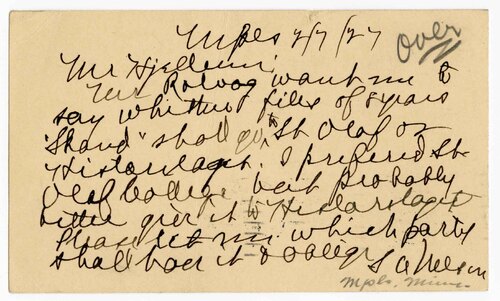 Mpls 2/7/27
Over
Mr Hjellum:
Mr Rolvog want me to
say whither files of 8 years
"Skand" shall go to St Olaf or
Historilaget. I prefered St
Olaf College but probably
better give it to Historilaget
Please let me which party
shall haer it & oblige
S A Nelson
Mpls. Minn.